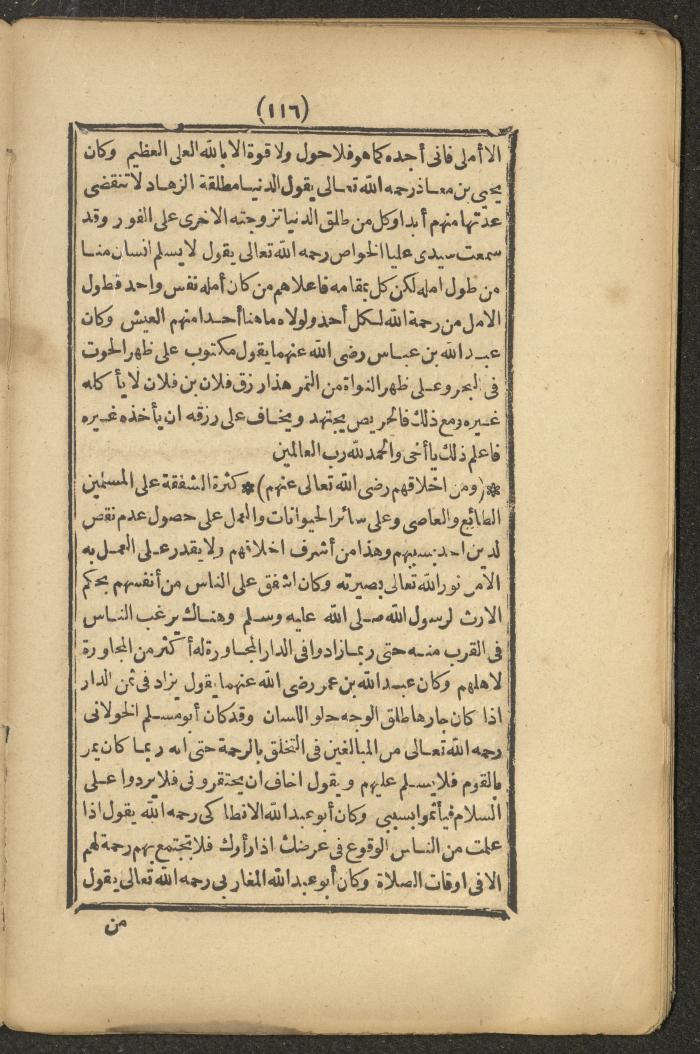 (١١٦)
الاأملى فانى أجده كماهو فلاحول ولا قوة الا بالله العلى العظيم وكان
يحيى بن معاذ رحمه الله تعالى يقول الدنيا مطلقة الزهاد لا تنقضى
عدتها منهم أبدا وكل من طلق الدنيا تزوجته الاخرى على الفور وقد
سمعت سيدى عليا الخواص رحمه الله تعالى يقول لا يسلم انسان منا
من طول امله لكن كل بمقامه فاعلاهم من كان أمله نفس واحد فطول
الامل من رحمة الله لكل أحد ولولاه ماهنا أحدا منهم العيش وكان
عبد الله بن عباس رضى الله عنهما يقول مكتوب على ظهر الحوت
فى البحر وعلى ظهر النواة من التمر هذا رزق فلان بن فلان لا يأكله
غيره ومع ذلك فالحريص يجتهد ويخاف على رزقه ان يأخذه غيره
فاعلم ذلك يا أخى والحمد لله رب العالمين
*(ومن اخلاقهم رضى الله تعالى عنهم)* كثرة الشفقة على المسلمين
الطائع والعاصى وعلى سائر الحيوانات والعمل على حصول عدم نقص
لدين احد بسببهم وهذا من أشرف اخلاقهم ولا يقدر على العمل به
الامن نور الله تعالى بصيرته وكان اشفق على الناس من أنفسهم بحكم
الارث لرسول الله صلى الله عليه وسلم وهناك يرغب الناس
فى القرب منه حتى ربما زادوا فى الدار المجاورة له أكثر من المجاورة
لاهلهم وكان عبد الله بن عمر رضى الله عنهما يقول يزاد فى ثمن الدار
اذا كان جارها طلق الوجه حلو اللسان وقد كان أبو مسلم الخولانى
رحمه الله تعالى من المبالغين فى التخلق بالرحمة حتى انه ربما كان يمر
بالقوم فلا يسلم عليهم ويقول اخاف ان يحتقرونى فلا يردوا على
السلام فيأثموا بسببى وكان أبو عبد الله الانطاكى رحمه الله يقول اذا
علمت من الناس الوقوع فى عرضك اذا رأوك فلا تجتمع بهم رحمة لهم
الا فى اوقات الصلاة وكان أبو عبد الله المغاربى رحمه الله تعالى يقول
من